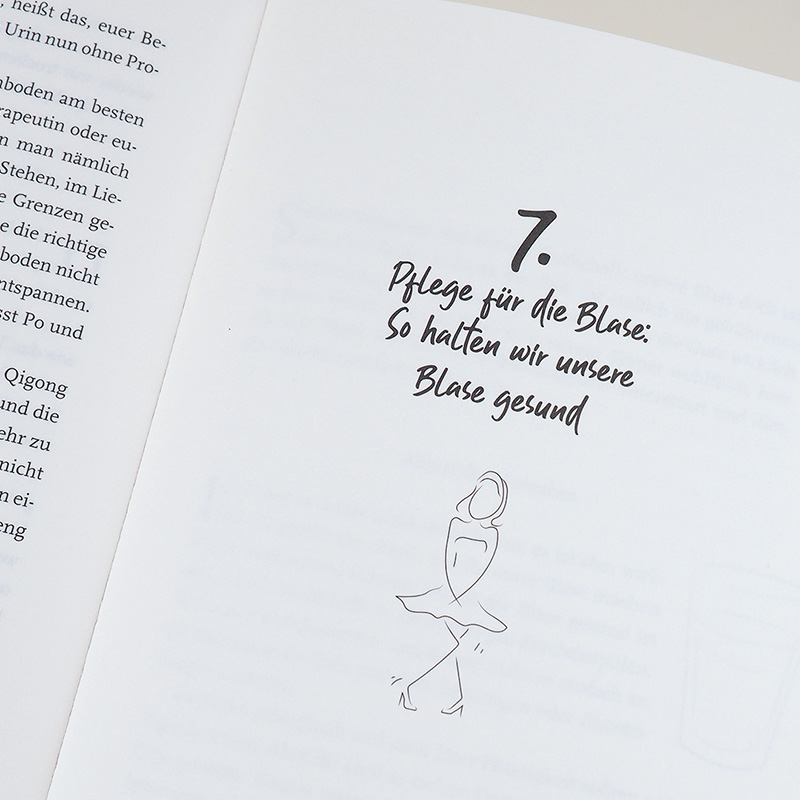 , heißt das, euer Be-
Urin nun ohne Pro-
boden am besten
rapeutin oder eu-
n man nämlich
Stehen, im Lie-
e Grenzen ge-
e die richtige
boden nicht
ntspannen.
sst Po und
Qigong
und die
ehr zu
nicht
n ei-
eng
7.
Pflege für die Blase:
So halten wir unsere
Blase gesund